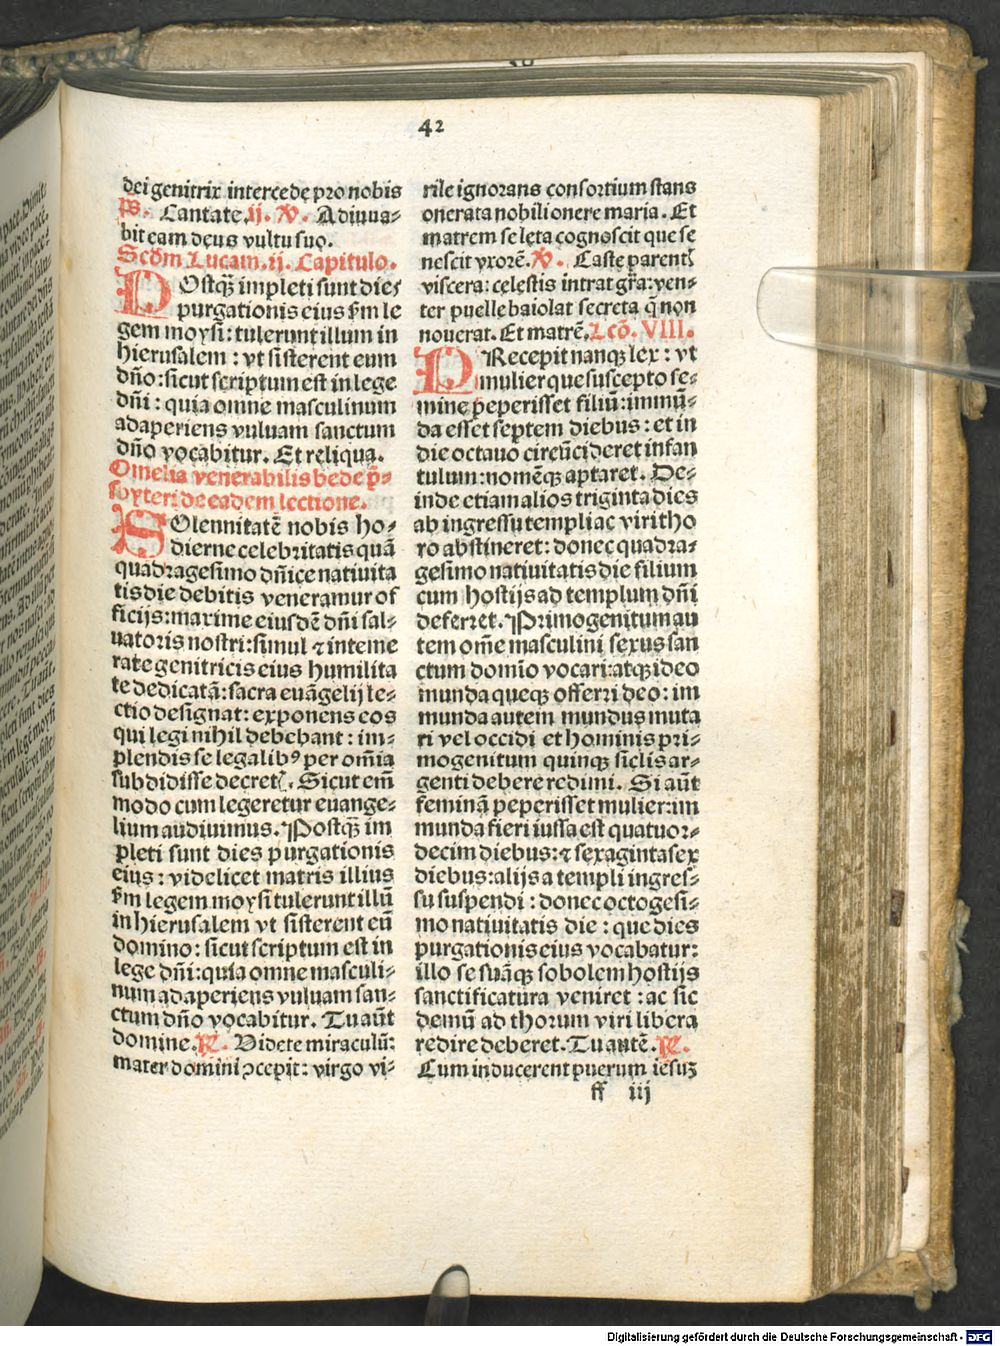 42
dei genitrix intercede pro nobis
p̄s. Cantate .ij. ℣. Adiuua⸗
bit eam deus vultu suo.
Scdm̄ Lucam .ij. Capitulo.
POstq̄ impleti sunt dies
purgationis eius s̄m le
gem moysi: tulerunt illum in
hierusalem : vt sisterent eum
dn̄o: sicut scriptum est in lege
dn̄i : quia omne masculinum
adaperiens vuluam sanctum
dn̄o vocabitur. Et reliqua.
Omelia venerabilis bede p̄⸗
sbyteri de eadem lectione.
SOlennitatē nobis ho⸗
dierne celebritatis quā
quadragesimo dn̄ice natiuita
tis die debitis veneramur of
ficijs: maxime eiusdē dn̄i sal⸗
uatoris nostri: simul ⁊ inteme
rate genitricis eius humilita
te dedicatā: sacra euāgelij le⸗
ctio designat: exponens eos
qui legi nihil debebant : im⸗
plendis se legalibꝰ per om̄ia
subdidisse decret. Sicut em̄
modo cum legeretur euange⸗
lium audiuimus. Postq̄ im
pleti sunt dies purgationis
eius : videlicet matris illius
s̄m legem moysi tulerunt illū
in hierusalem vt sisterent eū
domino: sicut scriptum est in
lege dn̄i: quia omne masculi⸗
num adaperiens vuluam san⸗
ctum dn̄o vocabitur. Tu aūt
domine. ℟. Videte miraculū:
mater domini ɔcepit: virgo vi⸗
rile ignorans consortium stans
onerata nobili onere maria. Et
matrem se leta cognoscit que se
nescit vxorē. ℣. Caste parentꝭ
viscera: celestis intrat gr̄a: ven⸗
ter puelle baiolat secreta q̄ non
nouerat. Et matrē. Lcō. VIII.
PRecepit nanqꝫ lex : vt
mulier que suscepto se⸗
mine peperisset filiū: immū⸗
da esset septem diebus : et in
die octauo circūcideret infan
tulum: nomēqꝫ aptaret. De⸗
inde etiam alios triginta dies
ab ingressu templi ac viri tho
ro abstineret: donec quadra⸗
gesimo natiuitatis die filium
cum hostijs ad templum dn̄i
deferret. Primogenitum au
tem om̄e masculini sexus san
ctum domīo vocari: atqꝫ ideo
munda queqꝫ offerri deo: im
munda autem mundus muta
ri vel occidi et hominis pri⸗
mogenitum quinqꝫ siclis ar⸗
genti debere redimi. Si aūt
feminā peperisset mulier: im
munda fieri iussa est quatuor⸗
decim diebus: ⁊ sexaginta sex
diebus: alijs a templi ingres⸗
su suspendi : donec octogesi⸗
mo natiuitatis die : que dies
purgationis eius vocabatur:
illo se suāqꝫ sobolem hostijs
sanctificatura veniret : ac sic
demū ad thorum viri libera
redire deberet. Tu autē. ℟.
Cum inducerent puerum iesuꝫ
ff iij
Digitalisierung gefördert durch die Deutsche Forschungsgemeinschaft - DFG